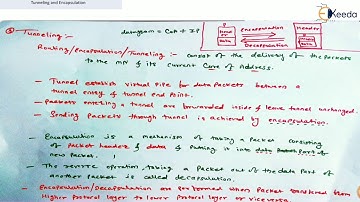 Tunneling and Encapsulation
Keeda
③ Tunneling :-
datagram = CoA + IP
Encapsulation
Decapsulation
Header
Data
Routing/Encapsulation/Tunneling :- consist of the delivery of the packets
to the MN of its current Care of Address.
- Tunnel establish virtual pipe for data packets between a
tunnel entry & tunnel end point.
- Packets entering a tunnel are forwarded inside & leave tunnel unchanged.
- Sending Packets through tunnel is achieved by encapsulation.
- Encapsulation is a mechanism of taking a packet consisting
of packet header & data & putting it into data part of
new packet.
- The reverse operation, taking a packet out of the data part of
another packet is called decapsulation.
- Encapsulation/Decapsulation are performed when packet transfered from
Higher protocol layer to lower protocol layer or viceversa